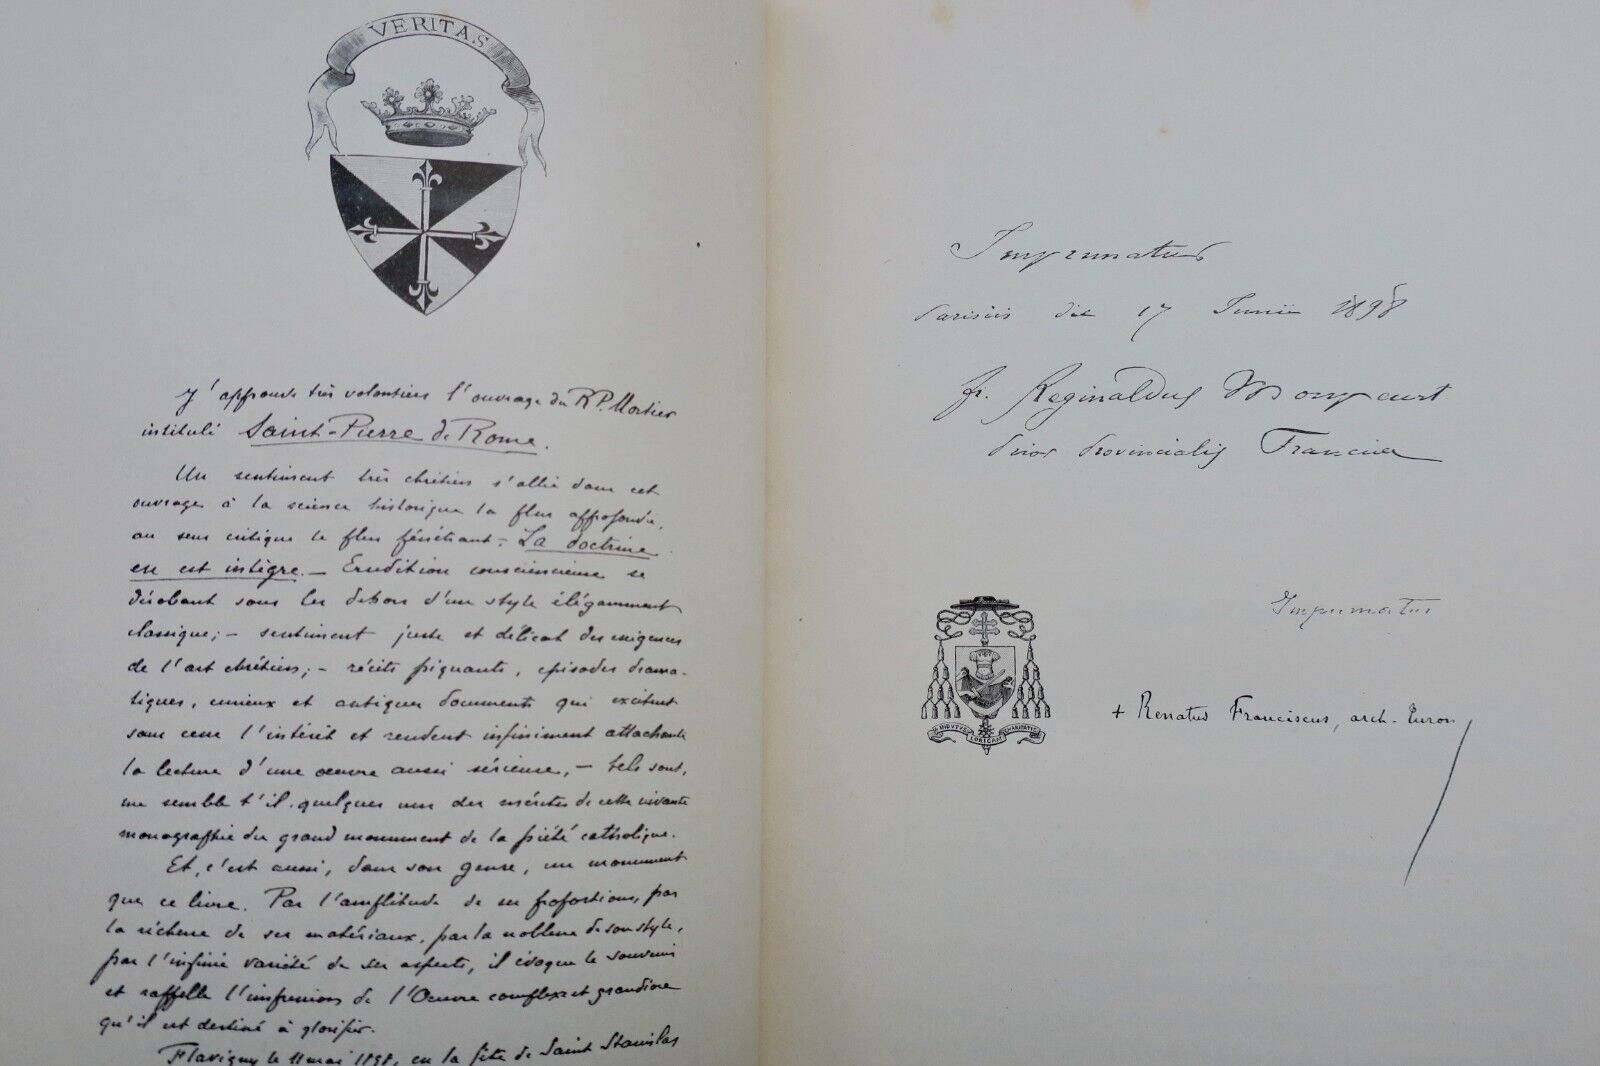 VERITAS
J'approuve très volontiers l'ouvrage du R P. Mortier
intitulé Saint-Pierre de Rome.
Un sentiment très chrétien s'allie dans cet
ouvrage à la science historique la plus approfondie,
au sens critique le plus pénétrant; La doctrine
en est intègre. — Erudition consciencieuse se
dérobant sous les dehors d'un style élégamment
classique; — sentiment juste et délicat des exigences
de l'art chrétien; — récits piquants, épisodes drama-
tiques, curieux et antiques documents qui excitent
sans cesse l'intérêt et rendent infiniment attachante
la lecture d'une œuvre aussi sérieuse, — tels sont,
me semble t'il, quelques uns des mérites de cette vivante
monographie du grand monument de la piété catholique.
Et, c'est aussi, dans son genre, un monument
que ce livre. Par l'amplitude de ses proportions, par
la richesse de ses matériaux, par la noblesse de son style,
par l'infinie variété de ses aspects, il évoque le souvenir
et rappelle l'impression de l'Oeuvre complexe et grandiose
qu'il est destiné à glorifier.
Flavigny le 11 mai 1898, en la fête de Saint Stanislas
Imprimatur
Parisiis die 17 Junii 1898
fr. Reginaldus Monpeurt
Prior Provincialis Franciae
Imprimatur
+ Renatus Franciscus, arch. Turon
INDUTUS LORICAM CHARITATIS